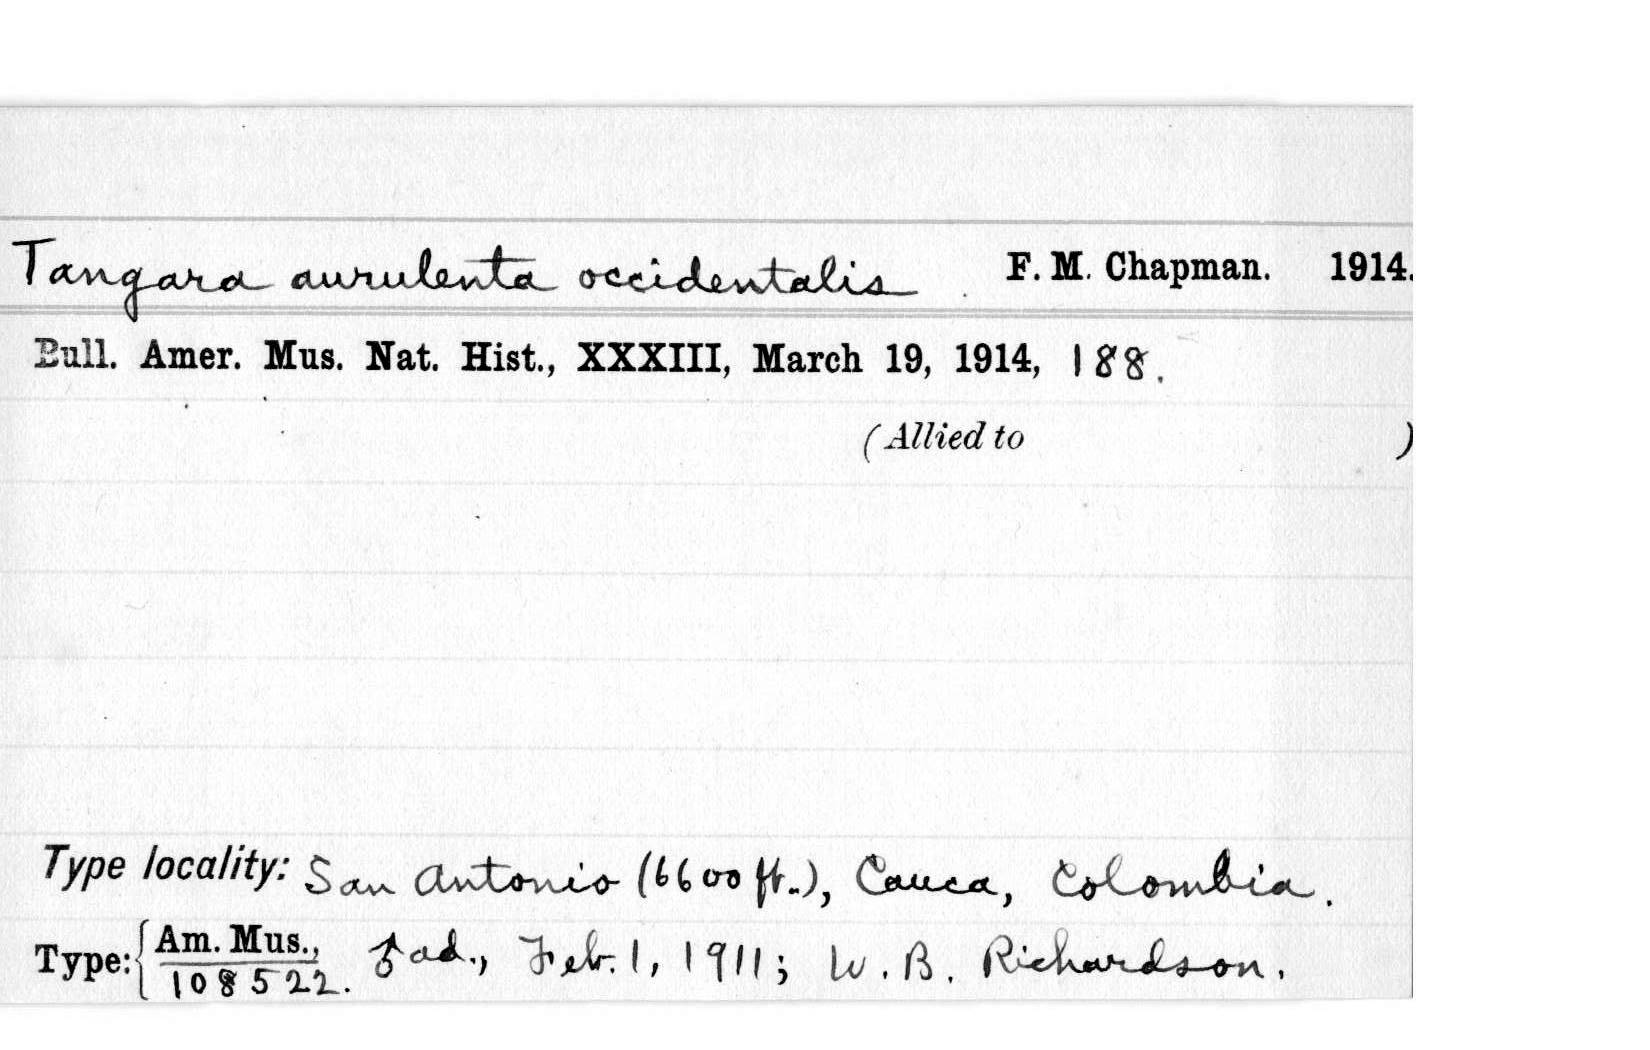 Tangara aurulenta occidentalis F. M. Chapman. 1914.
Bull. Amer. Mus. Nat. Hist., XXXIII, March 19, 1914, 188.
(Allied to )
Type locality: San Antonio (6600 ft.), Cauca, Colombia.
Type: { Am. Mus., ♂ ad., Feb. 1, 1911; W. B. Richardson.
108522.